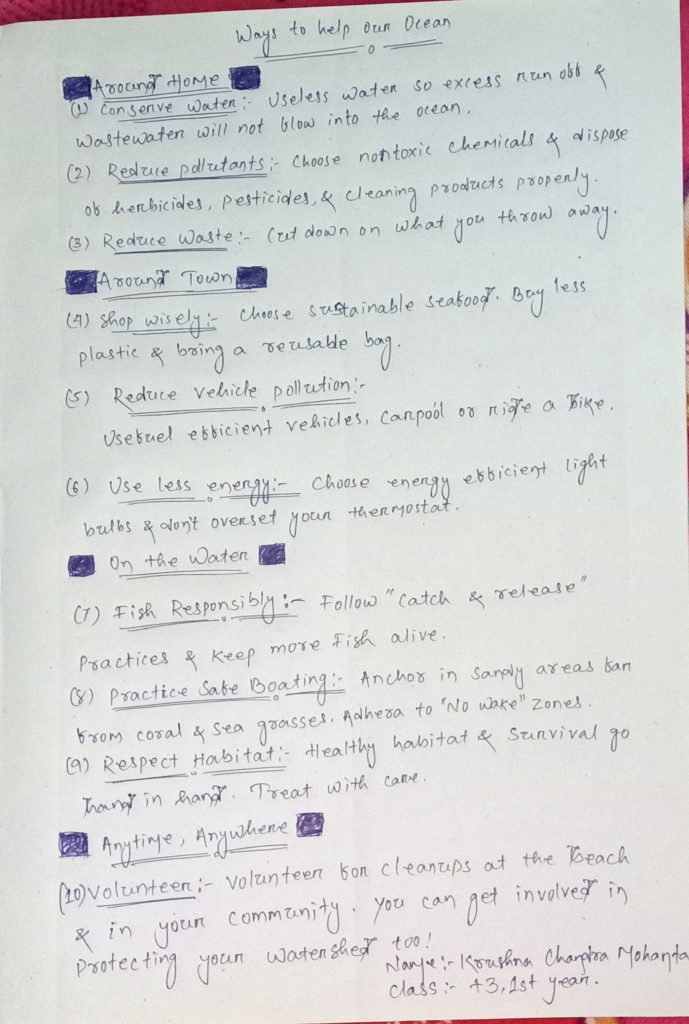 Ways to help our Ocean
Around Home
(1) Conserve water:- Useless water so excess run off &
wastewater will not flow into the ocean.
(2) Reduce pollutants:- Choose nontoxic chemicals & dispose
of herbicides, pesticides, & cleaning products properly.
(3) Reduce Waste:- Cut down on what you throw away.
Around Town
(4) Shop wisely:- Choose sustainable seafood. Buy less
plastic & bring a reusable bag.
(5) Reduce vehicle pollution:-
Usefuel efficient vehicles, carpool or ride a Bike.
(6) Use less energy:- Choose energy efficient light
bulbs & don't overset your thermostat.
On the Water
(7) Fish Responsibly:- Follow "catch & release"
Practices & keep more Fish alive.
(8) Practice Safe Boating:- Anchor in sandy areas far
from coral & sea grasses. Adhera to "No wake" zones.
(9) Respect Habitat:- Healthy habitat & survival go
hand in hand. Treat with care.
Anytime, Anywhere
(10) Volunteer:- Volunteer for cleanups at the Beach
& in your community. You can get involved in
Protecting your watershed too!
Name:- Krushna Chandra Mohanta
Class:- +3, 1st year.